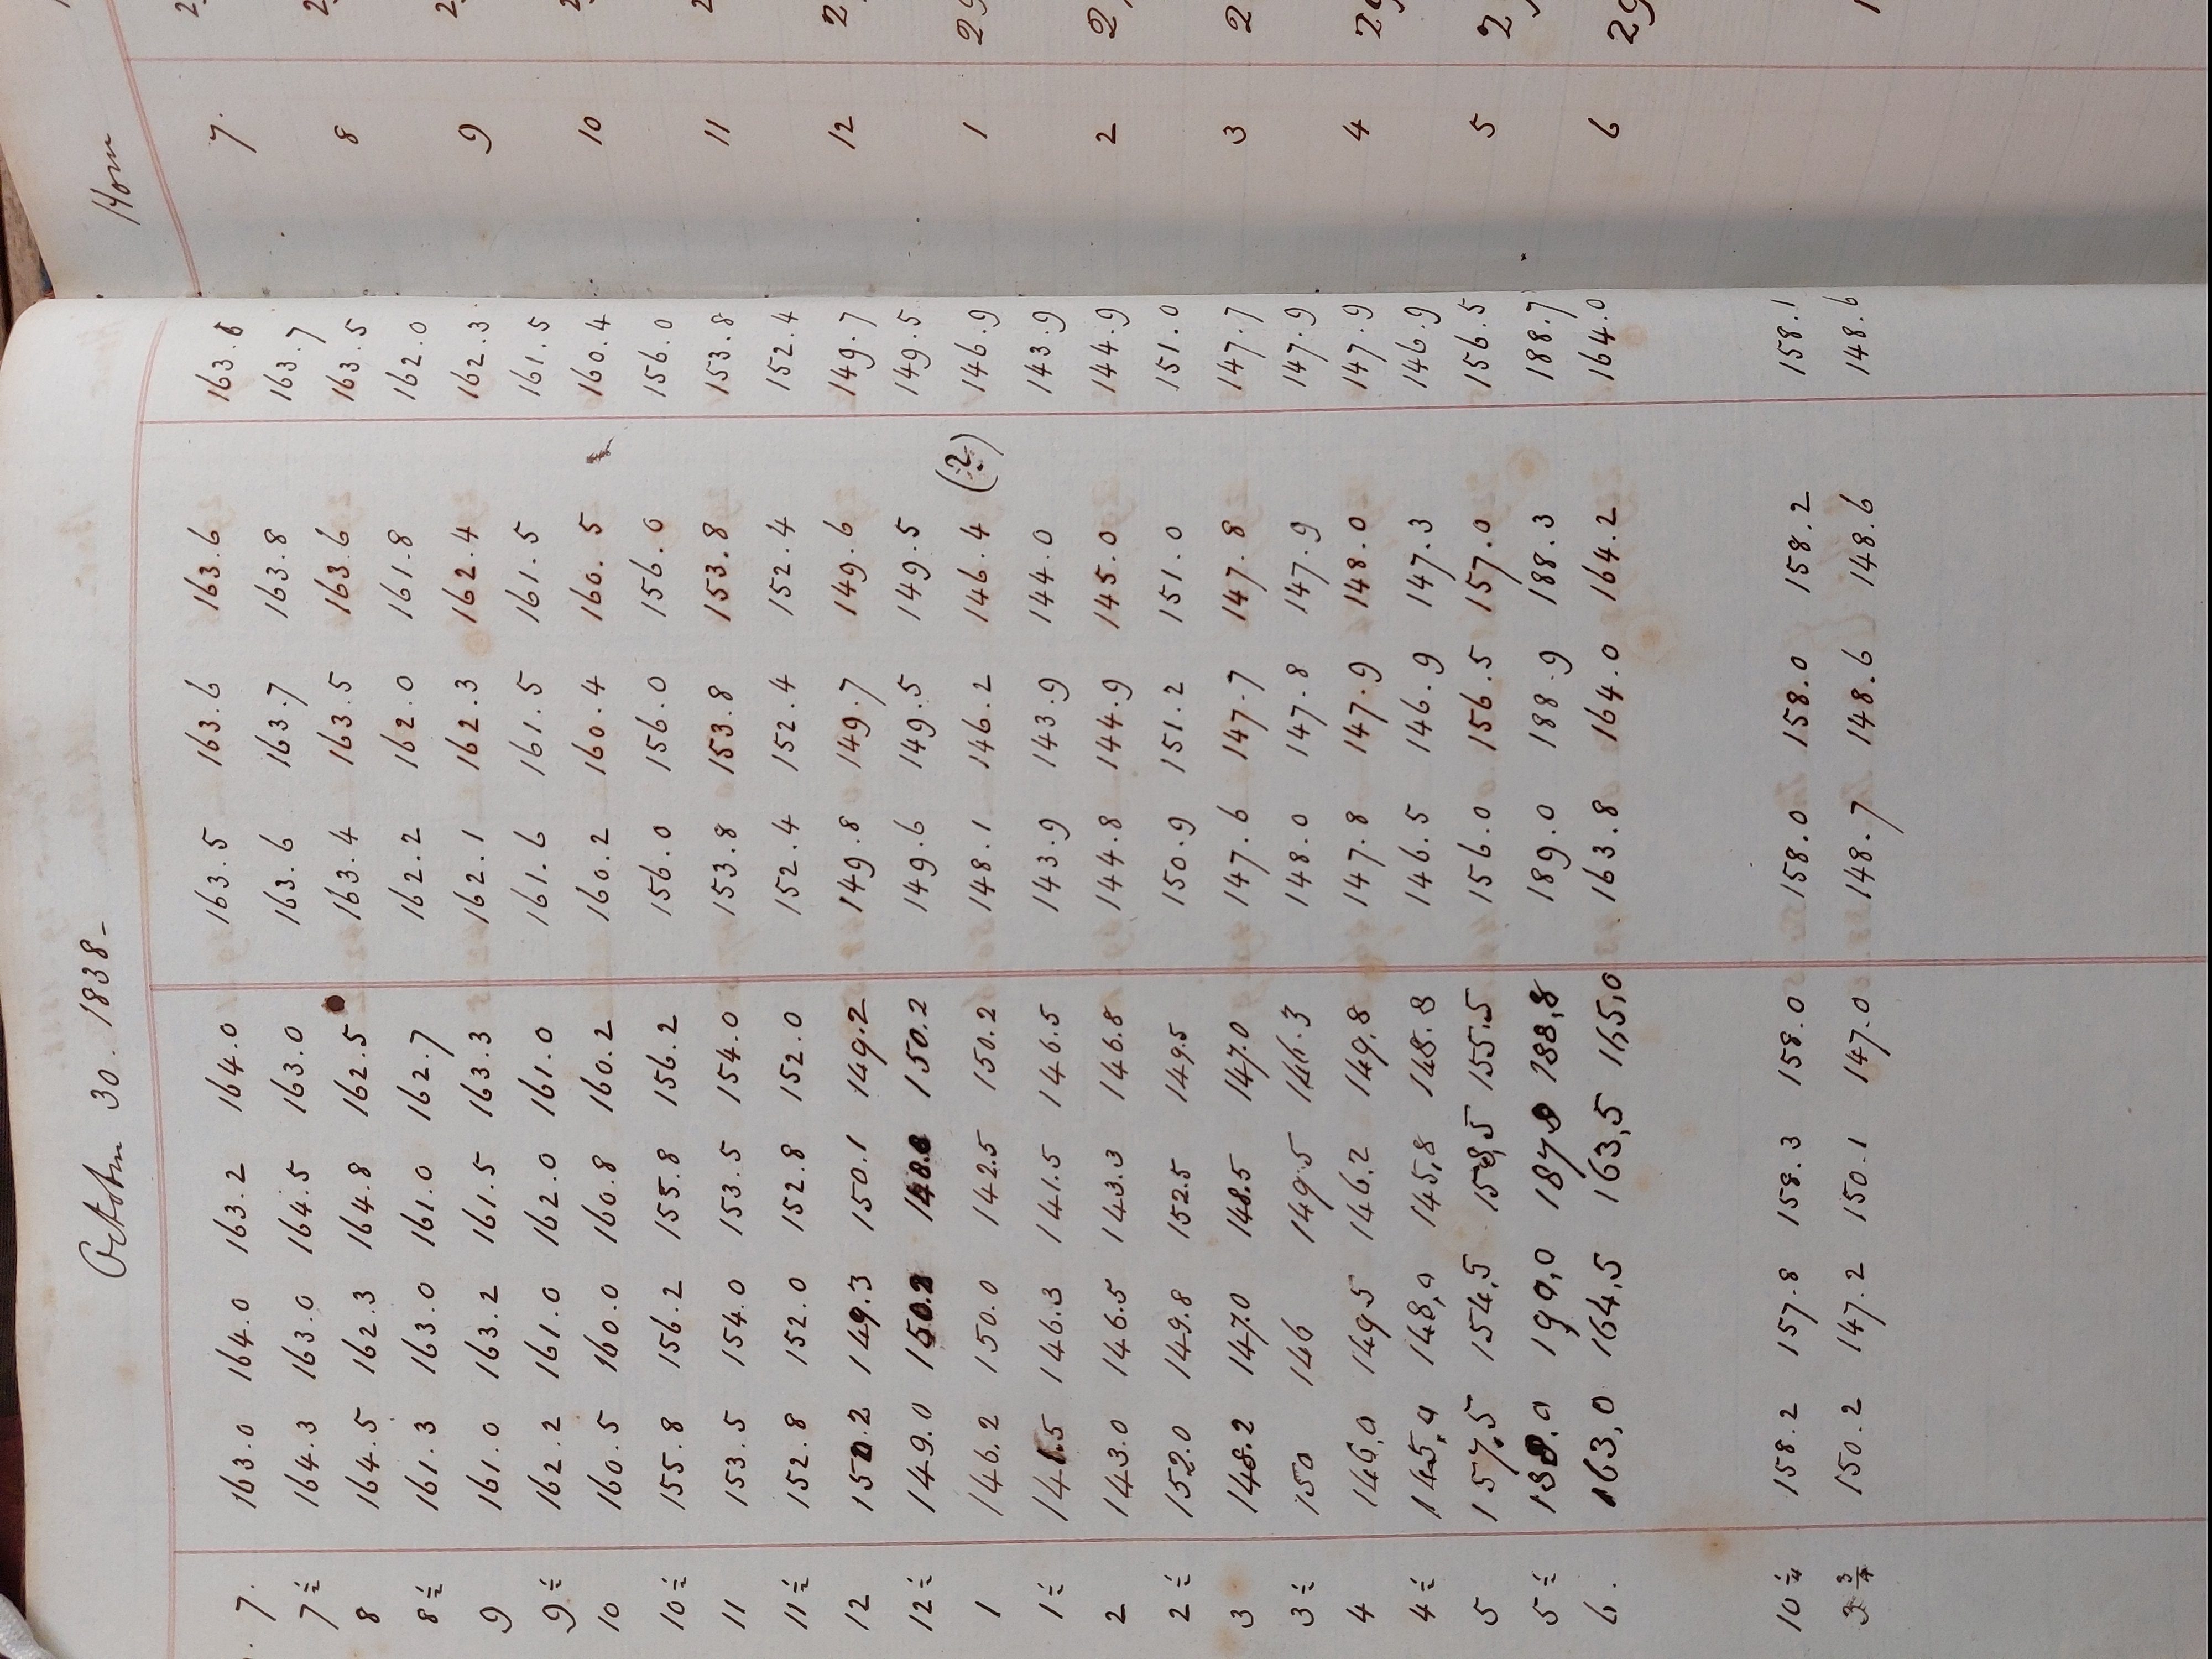 October 30. 1838-
7. 163.0 164.0 163.2 164.0 163.5 163.6 163.6 163.6
7½ 164.3 163.0 164.5 163.0 163.6 163.7 163.8 163.7
8 164.5 162.3 164.8 162.5 163.4 163.5 163.6 163.5
8½ 161.3 163.0 161.0 162.7 162.2 162.0 161.8 162.0
9 161.0 163.2 161.5 163.3 162.1 162.3 162.4 162.3
9½ 162.2 161.0 162.0 161.0 161.6 161.5 161.5 161.5
10 160.5 160.0 160.8 160.2 160.2 160.4 160.5 160.4
10½ 155.8 156.2 155.8 156.2 156.0 156.0 156.0 156.0
11 153.5 154.0 153.5 154.0 153.8 153.8 153.8 153.8
11½ 152.8 152.0 152.8 152.0 152.4 152.4 152.4 152.4
12 150.2 149.3 150.1 149.2 149.8 149.7 149.6 149.7
12½ 149.0 150.2 148.8 150.2 149.6 149.5 149.5 149.5
1 146.2 150.0 142.5 150.2 148.1 146.2 146.4 (?) 146.9
1½ 141.5 146.3 141.5 146.5 143.9 143.9 144.0 143.9
2 143.0 146.5 143.3 146.8 144.8 144.9 145.0 144.9
2½ 152.0 149.8 152.5 149.5 150.9 151.2 151.0 151.0
3 148.2 147.0 148.5 147.0 147.6 147.7 147.8 147.7
3½ 150 146 149.5 146.3 148.0 147.8 147.9 147.9
4 146,0 149 5 146.2 149,8 147.8 147.9 148.0 147.9
4½ 145,0 148,0 145,8 148.8 146.5 146.9 147.3 146.9
5 157.5 154,5 158,5 155.5 156.0 156.5 157.0 156.5
5½ 188.0 190,0 188,8 189.0 188.9 188.3 188.7
6. 163,0 164,5 163,5 165,0 163.8 164.0 164.2 164.0
10¼ 158.2 157.8 158.3 158.0 158.0 158.0 158.2 158.1
3¾ 150.2 147.2 150.1 147.0 148.7 148.6 148.6 148.6
Hour
7.
8
9
10
11
12
1
2
3
4
5
6